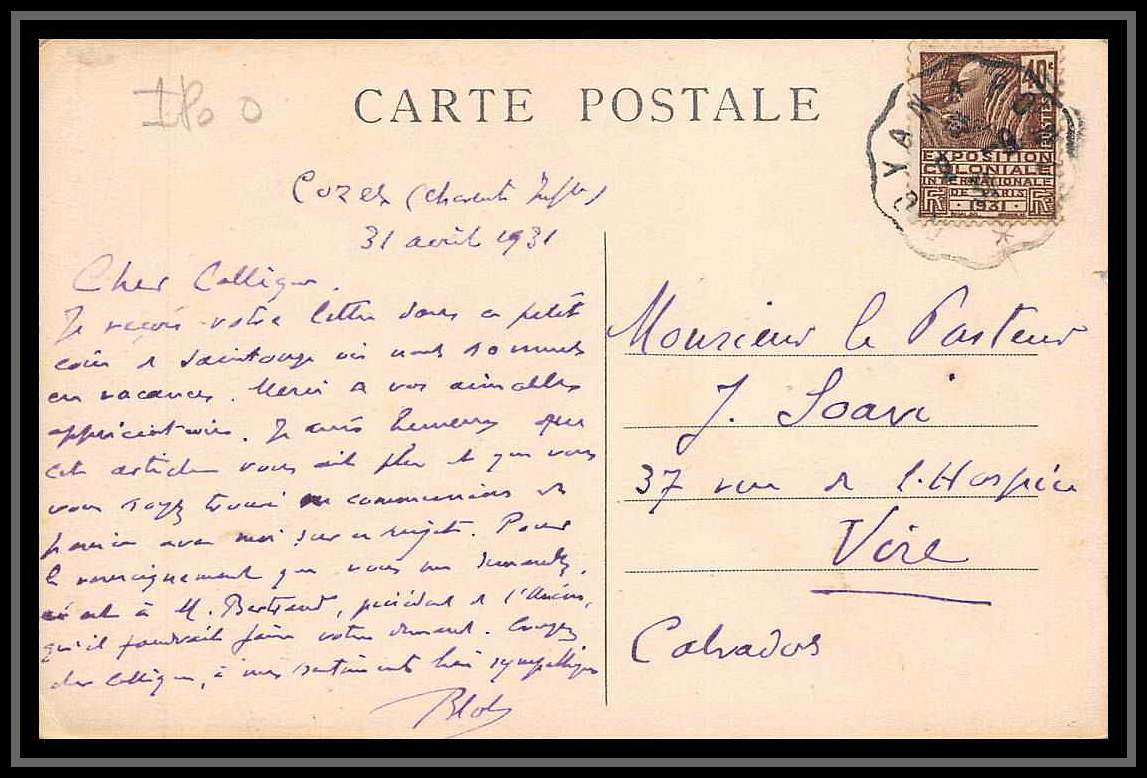 CARTE POSTALE
Cozes (Charente Infre)
31 avril 1931
Cher Collègue.
Je reçois votre lettre dans ce petit
coin de Saintonge où nous sommes
en vacances. Merci de vos aimables
appréciations. Je suis heureux que
cet article vous ait plu et que vous
vous soyez trouvé en communion de
pensée avec moi sur ce sujet. Pour
le renseignement que vous me demandez,
c'est à M. Bertrand, président de l'Union,
qu'il faudrait faire votre demande. Croyez,
cher Collègue, à mes sentiments bien sympathiques
40c
POSTES
EXPOSITION
COLONIALE
INTERNATIONALE
DE PARIS
1931
Monsieur le Pasteur
J. Soavi
37 rue de l'Hospice
Vire
Calvados